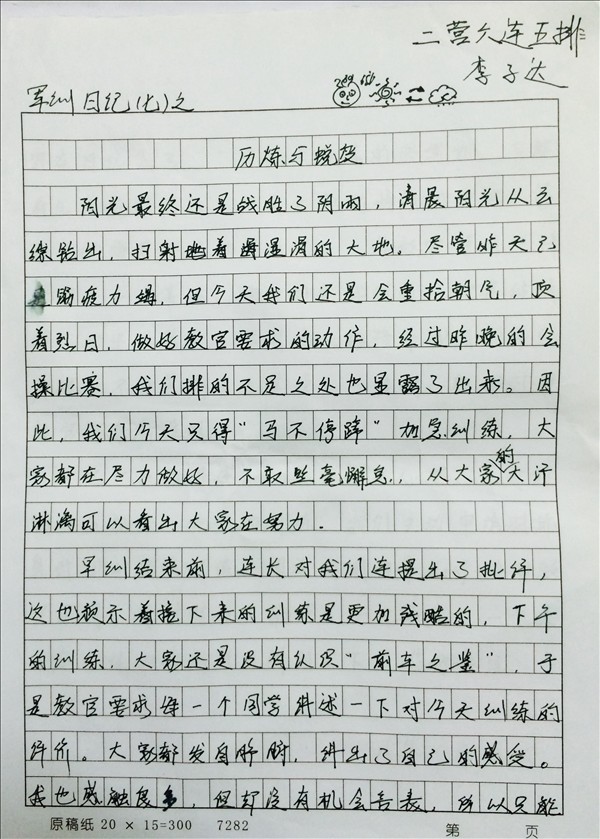 二营六连五排
李子达
军训日记(七)之
历炼与蜕变
阳光最终还是战胜了阴雨，清晨阳光从云
缭钻出，扫射着湿滑的大地。尽管昨天已
筋疲力竭，但今天我们还是会重拾朝气，顶
着烈日，做好教官要求的动作，经过昨晚的会
操比赛，我们排的不足之处也显露了出来。因
此，我们今天只得"马不停蹄"加急训练，大
家都在尽力做好，不敢丝毫懈怠，从大家的大汗
淋漓可以看出大家在努力．
早训结束前，连长对我们连提出了批评，
这也预示着接下来的训练是更加残酷的，下午
的训练，大家还是没有认识"前车之鉴"，于
是教官要求每一个同学讲述一下对今天训练的
评价。大家都发自肺腑，讲出了自己的感受。
我也感触良多，但却没有机会告表，所以只能
原稿纸 20 × 15=300 7282 第 页